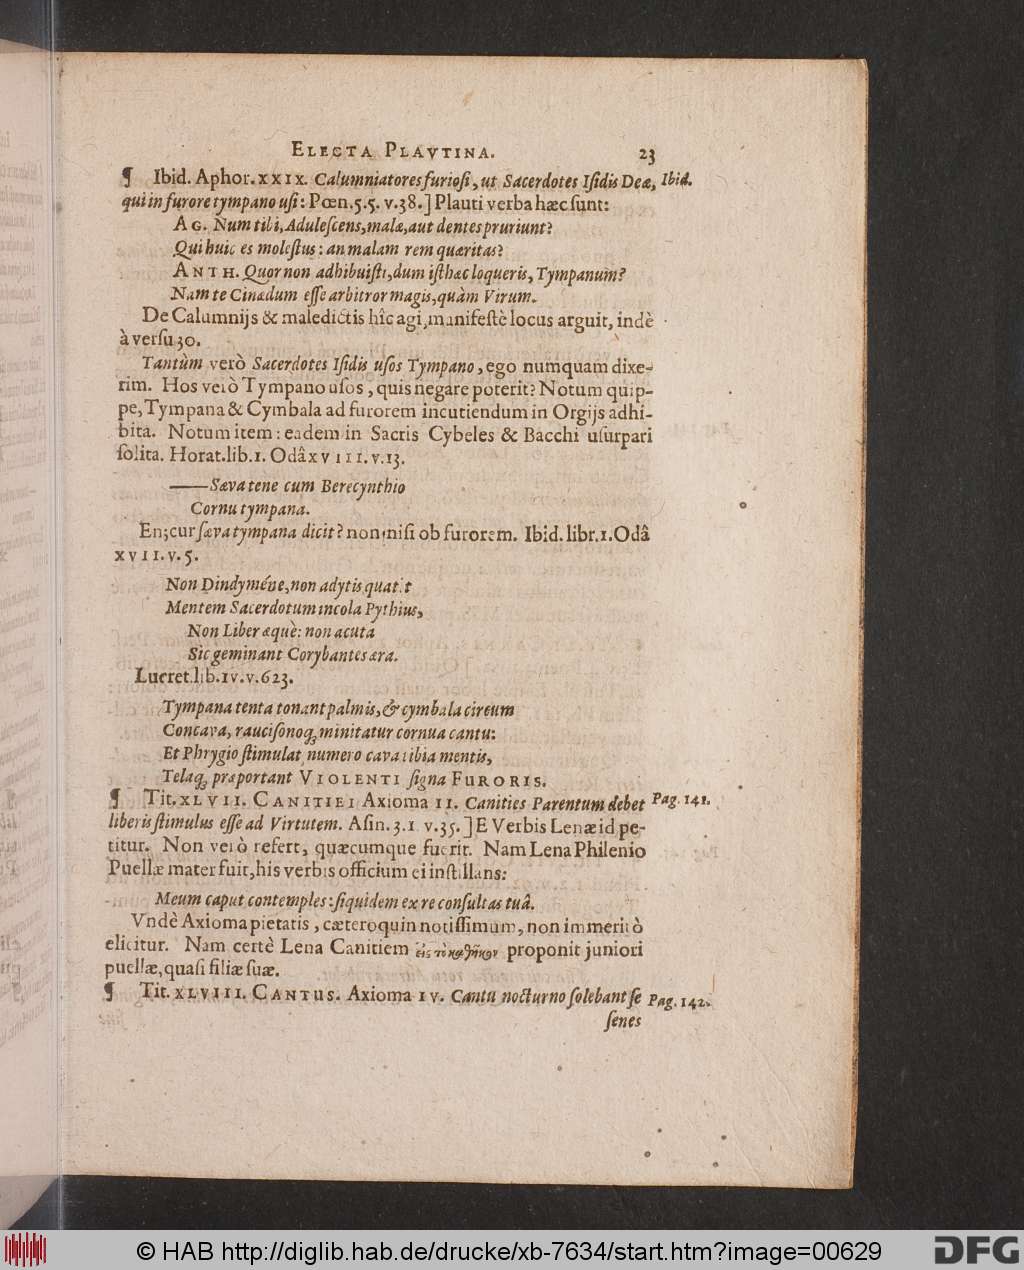 ELECTA PLAVTINA. 23
¶ Ibid. Aphor. XXIX. Calumniatores furiosi, ut Sacerdotes Isidis Deæ, Ibid.
qui in furore tympano usi: Pœn. 5.5. v.38.] Plauti verba hæc sunt:
AG. Num tibi, Adulescens, malæ, aut dentes pruriunt?
Qui huic es molestus: an malam rem quæritas?
ANTH. Quor non adhibuisti, dum isthæc loqueris, Tympanum?
Nam te Cinædum esse arbitror magis, quàm Virum.
De Calumnijs & maledictis hîc agi, manifestè locus arguit, indè
à versu 30.
Tantùm verò Sacerdotes Isidis usos Tympano, ego numquam dixe-
rim. Hos verò Tympano usos, quis negare poterit? Notum quip-
pe, Tympana & Cymbala ad furorem incutiendum in Orgijs adhi-
bita. Notum item: eadem in Sacris Cybeles & Bacchi usurpari
solita. Horat. lib. 1. Odâ XVIII. v. 13.
—— Sæva tene cum Berecynthio
Cornu tympana.
En; cur sæva tympana dicit? non nisi ob furorem. Ibid. libr. 1. Odâ
XVII. v. 5.
Non Dindyméne, non adytis quatit
Mentem Sacerdotum incola Pythius,
Non Liber æquè: non acuta
Sic geminant Corybantes æra.
Lucret. lib. IV. v. 623.
Tympana tenta tonant palmis, & cymbala circum
Concava, raucisonoq; minitatur cornua cantu:
Et Phrygio stimulat numero cava tibia mentis,
Telaq; præportant VIOLENTI signa FURORIS.
¶ Tit. XLVII. CANITIEI Axioma II. Canities Parentum debet Pag. 141.
liberis stimulus esse ad Virtutem. Asin. 3.1. v.35.] E Verbis Lenæ id pe-
titur. Non verò refert, quæcumque fuerit. Nam Lena Philenio
Puellæ mater fuit, his verbis officium ei instillans:
Meum caput contemples: siquidem ex re consultas tuâ.
Vndè Axioma pietatis, cæteroquin notissimum, non immeritò
elicitur. Nam certè Lena Canitiem εἰς τὸ καθῆκον proponit juniori
puellæ, quasi filiæ suæ.
¶ Tit. XLVIII. CANTUS. Axioma IV. Cantu nocturno solebant se Pag. 142.
senes
© HAB http://diglib.hab.de/drucke/xb-7634/start.htm?image=00629
DFG